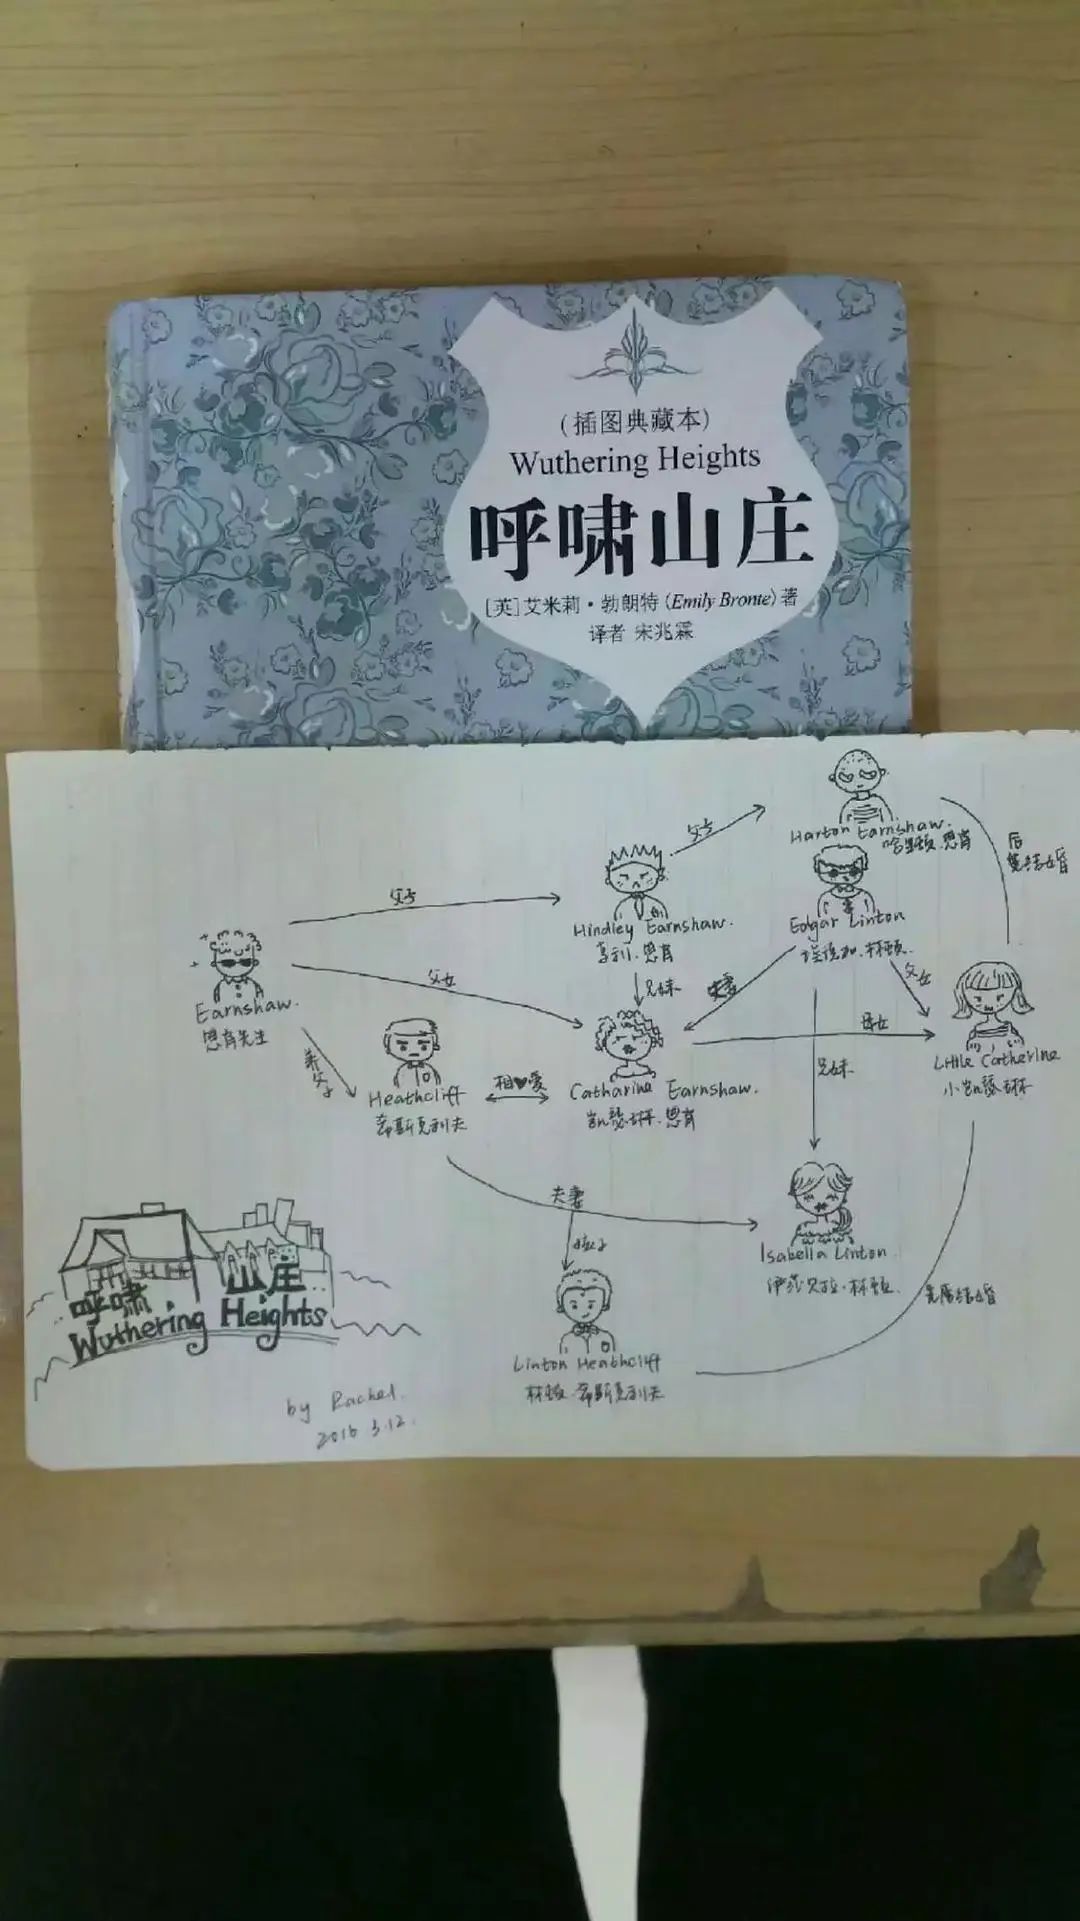 (插图典藏本)
Wuthering Heights
呼啸山庄
[英]艾米莉·勃朗特(Emily Bronte)著
译者 宋兆霖
Harton Earnshaw.
哈里顿.恩肖
父子
后
结婚
Hindley Earnshaw.
亨利.恩肖
Edgar Linton
埃德加.林顿.
父子
Earnshaw.
恩肖先生
父女
兄妹
夫妻
父女
母女
Little Catherine
小凯瑟琳
养父子
Heathcliff
希斯克利夫
相♥爱
Catharine Earnshaw.
凯瑟琳.恩肖
兄妹
夫妻
Isabella Linton.
伊莎贝拉.林顿.
孩子
Linton Heathcliff
林顿.希斯克利夫
先结婚
呼啸山庄
Wuthering Heights
by Rachel.
2016.3.12.